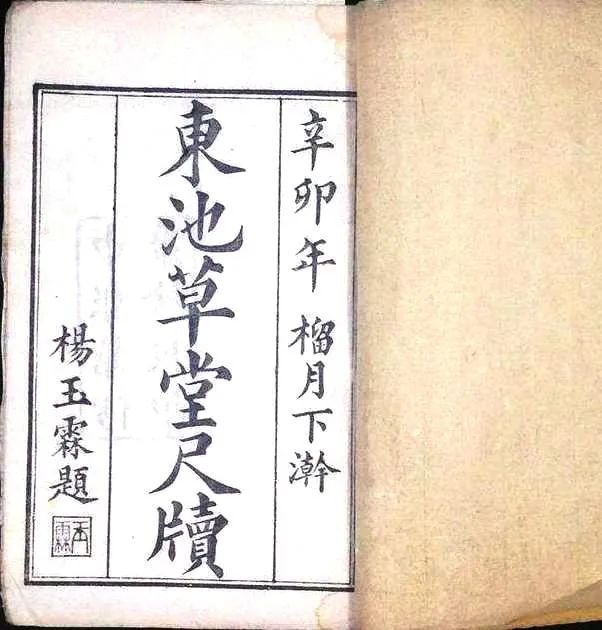 辛卯年榴月下澣
東池草堂尺牘
楊玉霖題